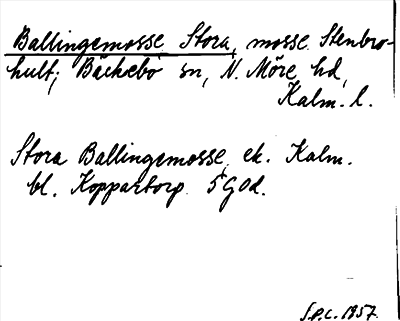 Ballingemosse, Stora, mosse Stenbro-
hult; Bäckebo sn, N. Möre hd,
Kalm. l.
Stora Ballingemosse ek. Kalm.
bl. Koppartorp 5 GOd.
S.P.C. 1957.